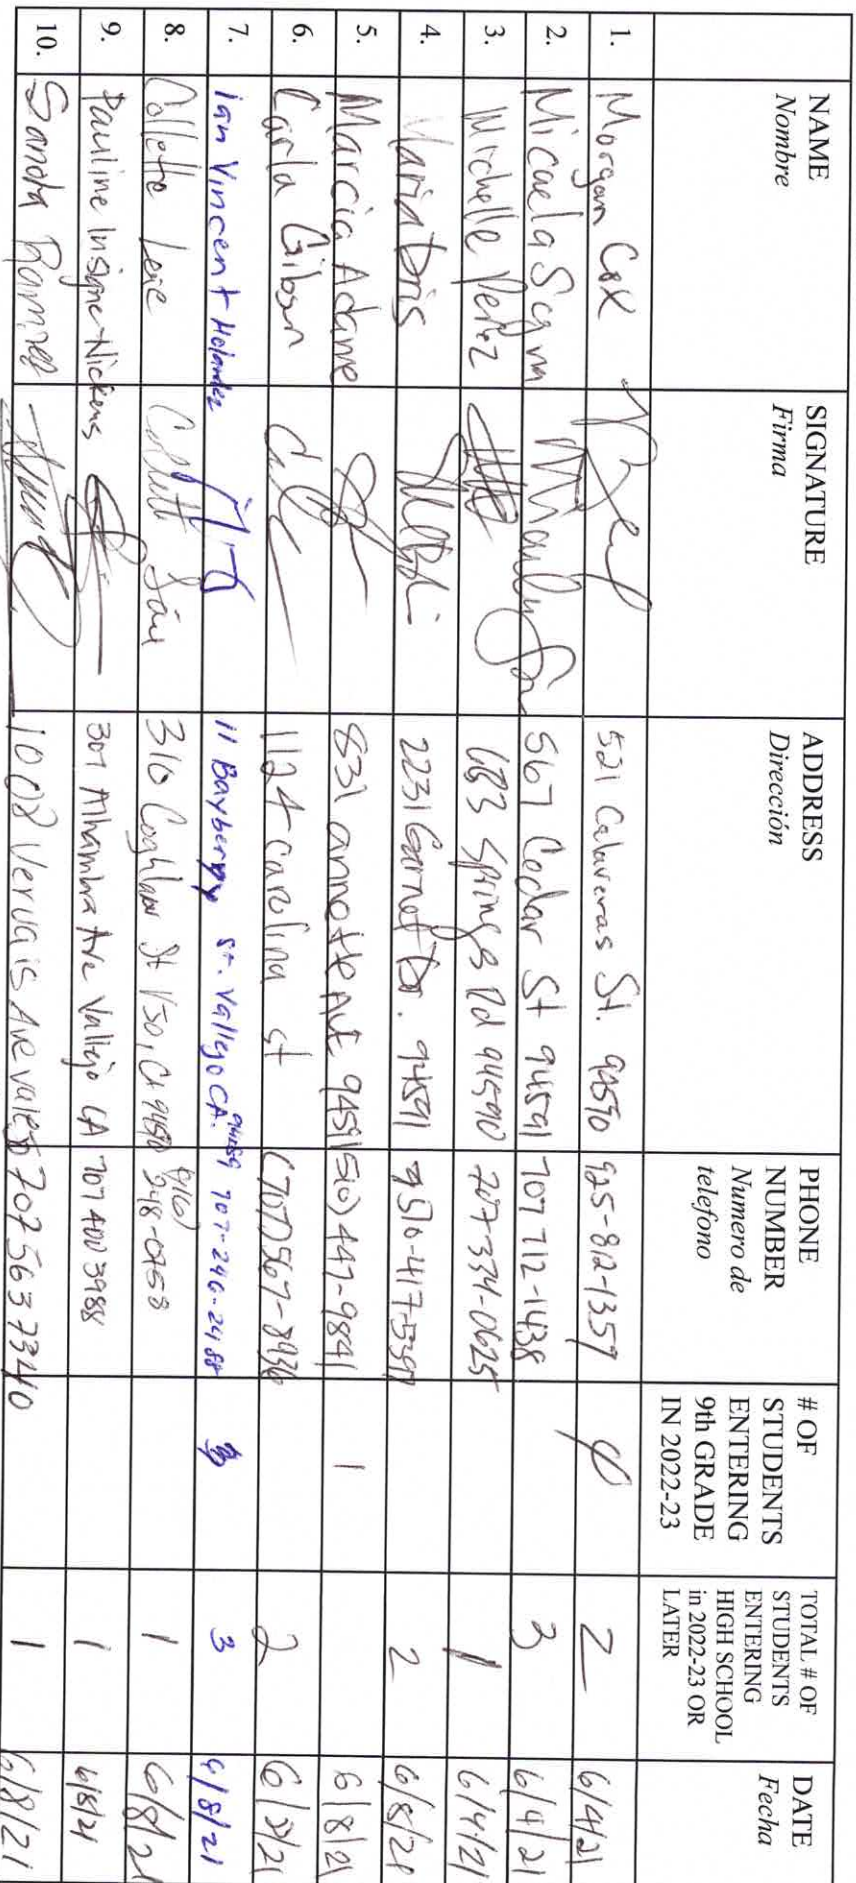 NAME Nombre | SIGNATURE Firma | ADDRESS Dirección | PHONE NUMBER Numero de telefono | # OF STUDENTS ENTERING 9th GRADE IN 2022-23 | TOTAL # OF STUDENTS ENTERING HIGH SCHOOL in 2022-23 OR LATER | DATE Fecha
1. Morgan Cox 521 Calaveras St. 94590 925-812-1359 2 6/4/21
2. Micaela 567 Cedar St 94591 707 712-1438 3 6/4/21
3. Michelle Perez Springs Rd 94590 707-334-0625 1 6/4/21
4. Maria 2231 Garnet Dr. 94591 2 6/8/21
5. Marcia Adame 831 annette Ave 9459 510) 447-9841 1 6/8/21
6. Carla Gibson 1124 carolina st (707) 567-8936 2 6/8/21
7. ian Vincent 11 Bayberry st. Vallejo CA. 707-246-2488 3 6/8/21
8. Collette 310 Coghlan St (916) 1 6/8/21
9. Pauline Insigne-Nickens 301 Alhambra Ave Vallejo CA 707 400 3988 1 6/8/21
10. Sandra Ramirez 1008 Vervais Ave 707 563 7340 1 6/8/21